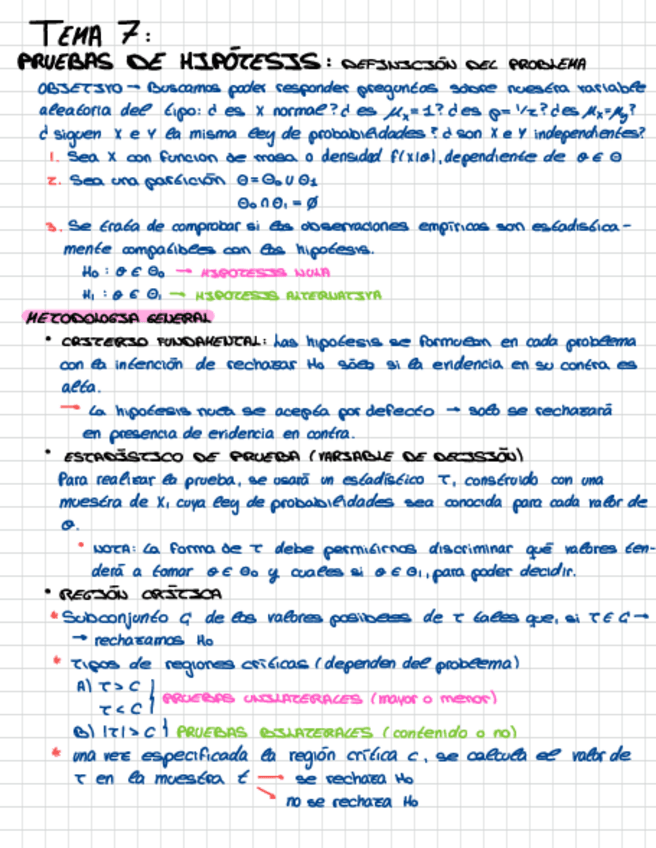 TEMA 7:
PRUEBAS DE HIPÓTESIS: DEFINICIÓN DEL PROBLEMA
OBJETIVO → Buscamos poder responder preguntas sobre nuestra variable
aleatoria del tipo: ¿ es X normal? ¿ es μₓ=1? ¿es p= 1/2? ¿es μₓ=μᵧ?
¿ siguen X e Y la misma ley de probabilidades? ¿ son X e Y independientes?
1. Sea X con función de masa o densidad f(x|θ), dependiente de θ ∈ Θ
2. Sea una partición Θ=Θ₀ ∪ Θ₁
Θ₀ ∩ Θ₁ = ∅
3. Se trata de comprobar si las observaciones empíricas son estadística-
mente compatibles con las hipótesis.
H₀ : θ ∈ Θ₀ → HIPÓTESIS NULA
H₁ : θ ∈ Θ₁ → HIPÓTESIS ALTERNATIVA
METODOLOGIA GENERAL
• CRITERIO FUNDAMENTAL: Las hipótesis se formulan en cada problema
con la intención de rechazar H₀ sólo si la evidencia en su contra es
alta.
→ La hipótesis nula se acepta por defecto → solo se rechazará
en presencia de evidencia en contra.
• ESTADÍSTICO DE PRUEBA (VARIABLE DE DECISIÓN)
Para realizar la prueba, se usará un estadístico T, construido con una
muestra de X, cuya ley de probabilidades sea conocida para cada valor de
θ.
* NOTA: La forma de T debe permitirnos discriminar qué valores ten-
derá a tomar θ ∈ Θ₀ y cuales si θ ∈ Θ₁, para poder decidir.
• REGIÓN CRÍTICA
* Subconjunto C de los valores posibles de T tales que, si T ∈ C →
→ rechazamos H₀
* Tipos de regiones críticas (dependen del problema)
A) T > C
T < C } PRUEBAS UNILATERALES (mayor o menor)
B) |T| > C } PRUEBAS BILATERALES (contenido o no)
* una vez especificada la región crítica C, se calcula el valor de
T en la muestra t → se rechaza H₀
↘ no se rechaza H₀